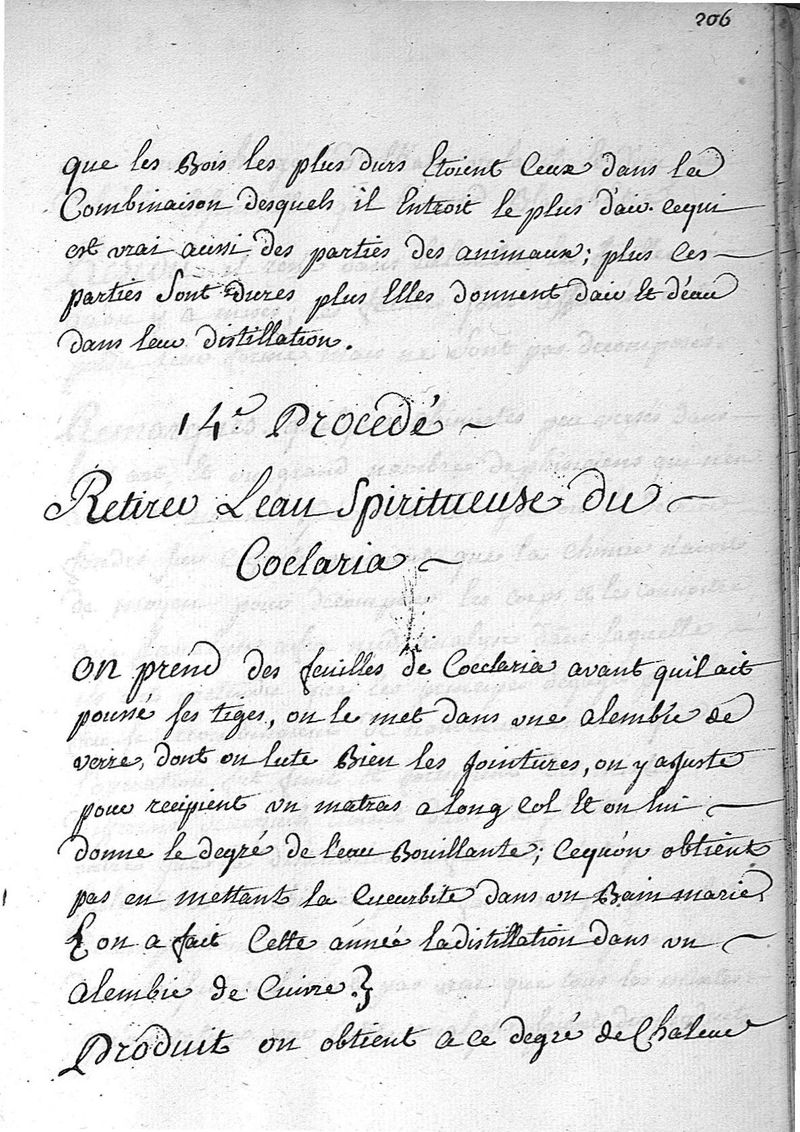 206
que les Bois les plus durs Etoient Ceux dans la
Combinaison desquels il Entroit le plus d'air. cequi
est vrai aussi des parties des animaux; plus ces
parties sont dures plus Elles donnent d'air Et d'eau
dans leur distillation.
14e Procedé
Retirer L'eau Spiritueuse du
Coclaria
on prend des feuilles de Coeclaria avant quil ait
poussé ses tiges, on le met dans une alembic de
verre, dont on lute Bien les Jointures, on y ajuste
pour recipient un matras a long Col Et on lui
donne le degré de l'eau Bouillante; Cequ'on obtient
pas en mettant la Cucurbite dans un Bain marie
{ on a fait Cette année la distillation dans un
alembic de Cuivre. }
Produit on obtient a ce degré de Chaleur